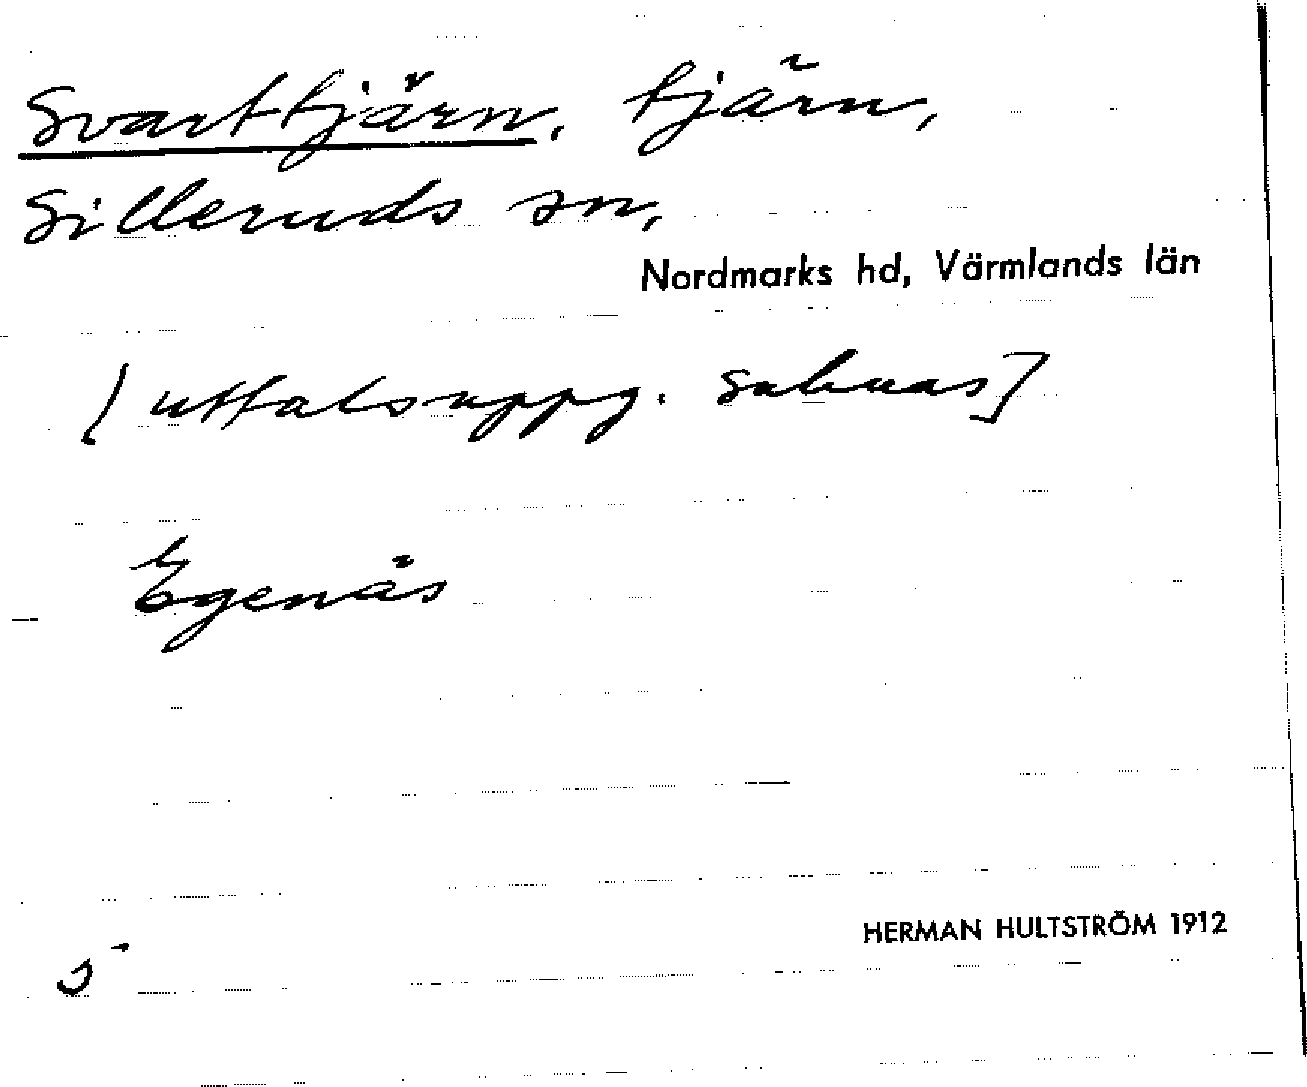 Svarttjärn, tjärn,
Silleruds sn,
Nordmarks hd, Värmlands län
[uttalsuppg. saknas]
Egenäs
HERMAN HULTSTRÖM 1912